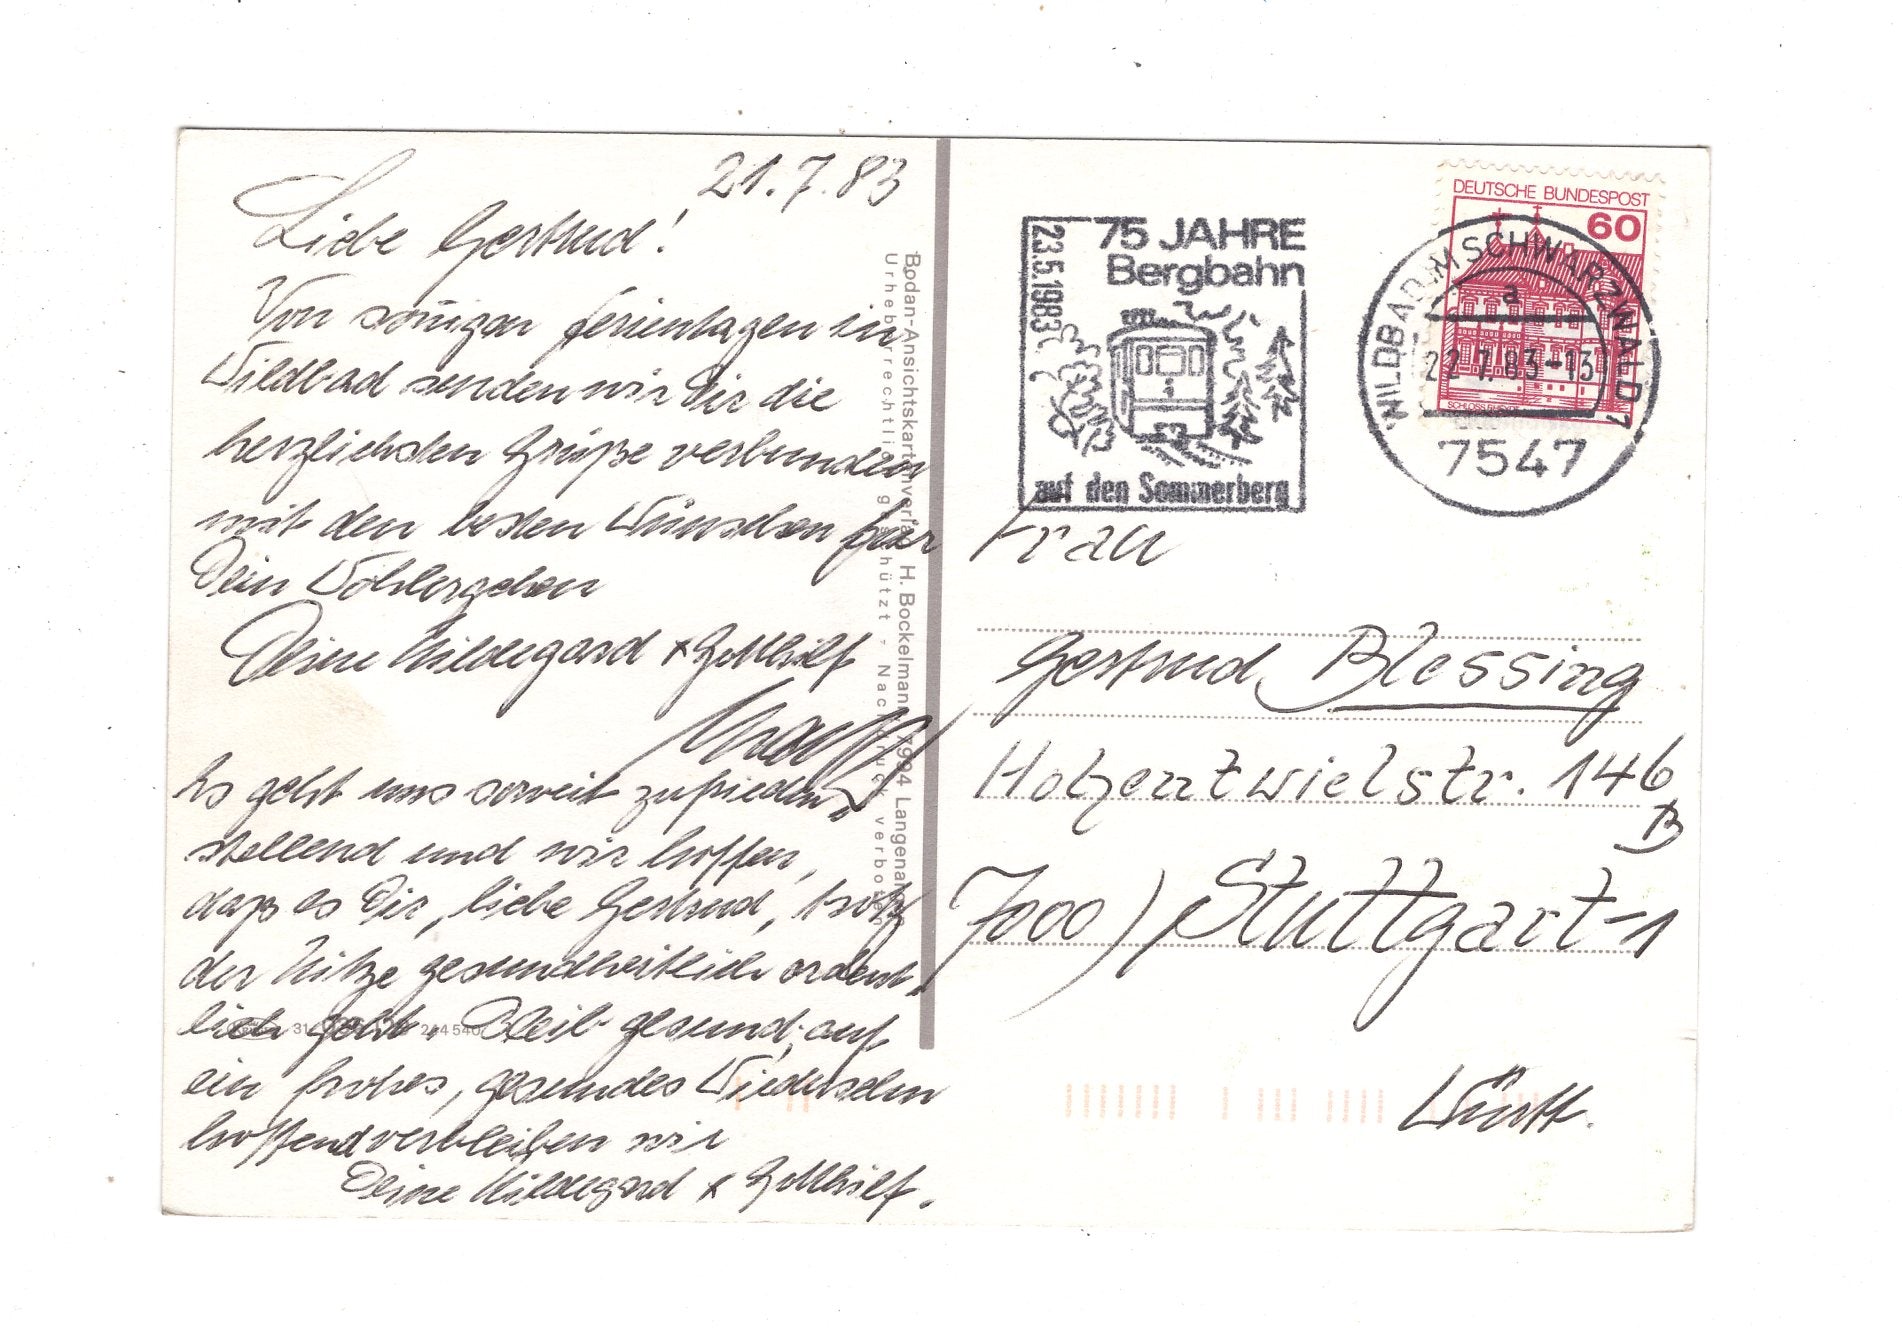 21.7.83
Liebe Gertrud!
Von sonnigen Ferientagen in
Wildbad senden wir Dir die
herzlichsten Grüße verbunden
mit den besten Wünschen für
Dein Wohlergehen
Deine Hildegard + Gotthilf
Es geht uns soweit zufrieden-
stellend und wir hoffen,
daß es Dir, liebe Gertrud, trotz
der Hitze gesundheitlich ordent-
lich geht. Bleib gesund, auf
ein frohes, gesundes Wiedersehn
hoffend verbleiben wir
Deine Hildegard + Gotthilf.
Bodan-Ansichtskartenverlag H. Bockelmann, 7994 Langenargen
Urheberrechtlich geschützt - Nachdruck verboten
244 540
23.5.1983
75 JAHRE
Bergbahn
auf den Sommerberg
DEUTSCHE BUNDESPOST
60
WILDBAD IM SCHWARZWALD 1
a
22.7.83-13
7547
Frau
Gertrud Blessing
Hohentwielstr. 146
B
7000) Stuttgart-1
Württ.